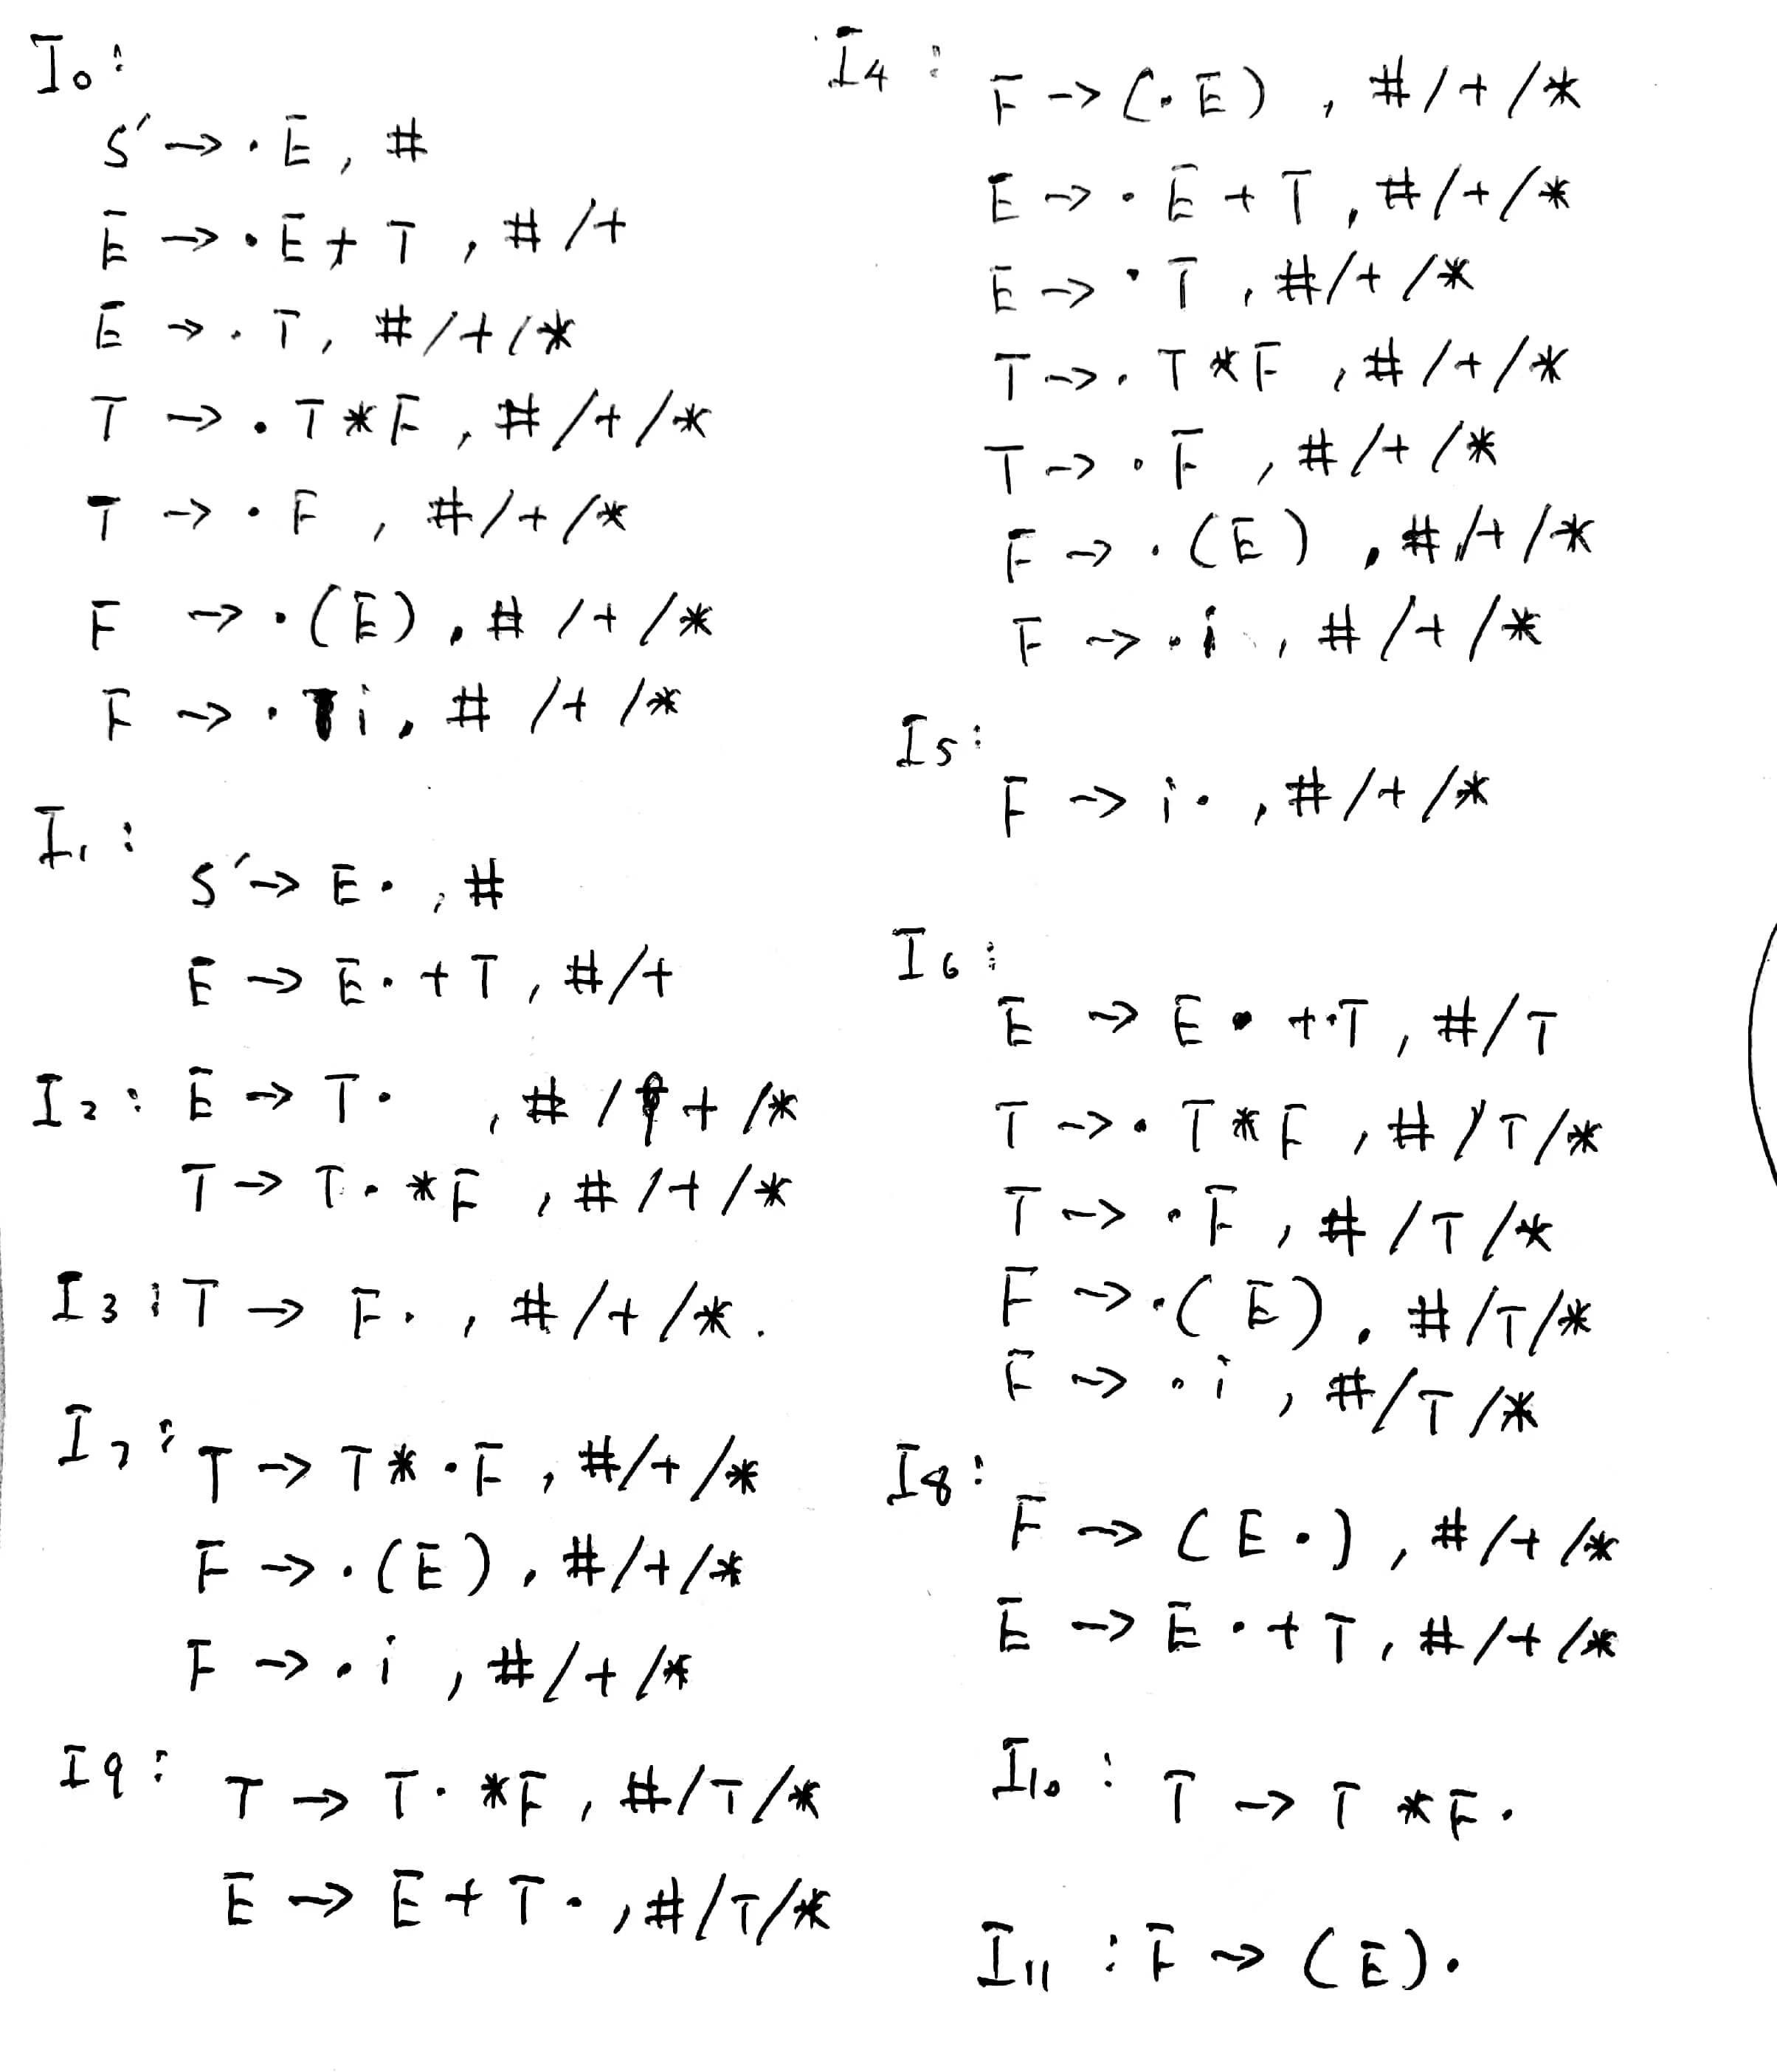 I0:
S' → ·E, #
E → ·E + T, # /+
E → ·T, # /+/*
T → ·T*F, # /+/*
T → ·F, # /+/*
F → ·(E), # /+/*
F → ·i, # /+/*
I1:
S' → E·, #
E → E·+T, #/+
I2: E → T·, # /+/*
T → T·*F, # /+/*
I3: T → F·, #/+/*.
I7: T → T*·F, #/+/*
F → ·(E), #/+/*
F → ·i, #/+/*
I9: T → T·*F, #/T/*
E → E+T·, #/T/*
I4: F → (·E), #/+/*
E → ·E+T, #/+/*
E → ·T, #/+/*
T → ·T*F, #/+/*
T → ·F, #/+/*
F → ·(E), #/+/*
F → ·i, #/+/*
I5:
F → i·, #/+/*
I6:
E → E·+·T, #/T
T → ·T*F, #/T/*
T → ·F, #/T/*
F → ·(E), #/T/*
F → ·i, #/T/*
I8:
F → (E·), #/+/*
E → E·+T, #/+/*
I10: T → T*F·
I11: F → (E)·